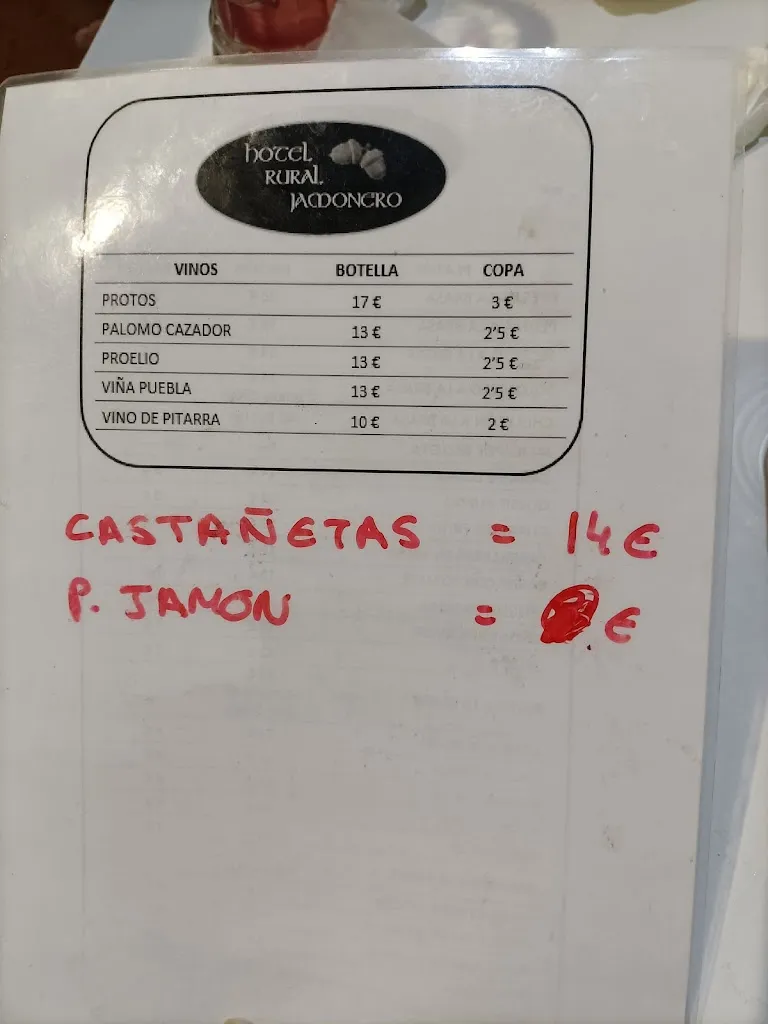 HOTEL
RURAL
JAMONERO
VINOS BOTELLA COPA
PROTOS 17 € 3 €
PALOMO CAZADOR 13 € 2'5 €
PROELIO 13 € 2'5 €
VIÑA PUEBLA 13 € 2'5 €
VINO DE PITARRA 10 € 2 €
CASTAÑETAS = 14 €
P. JAMON = €